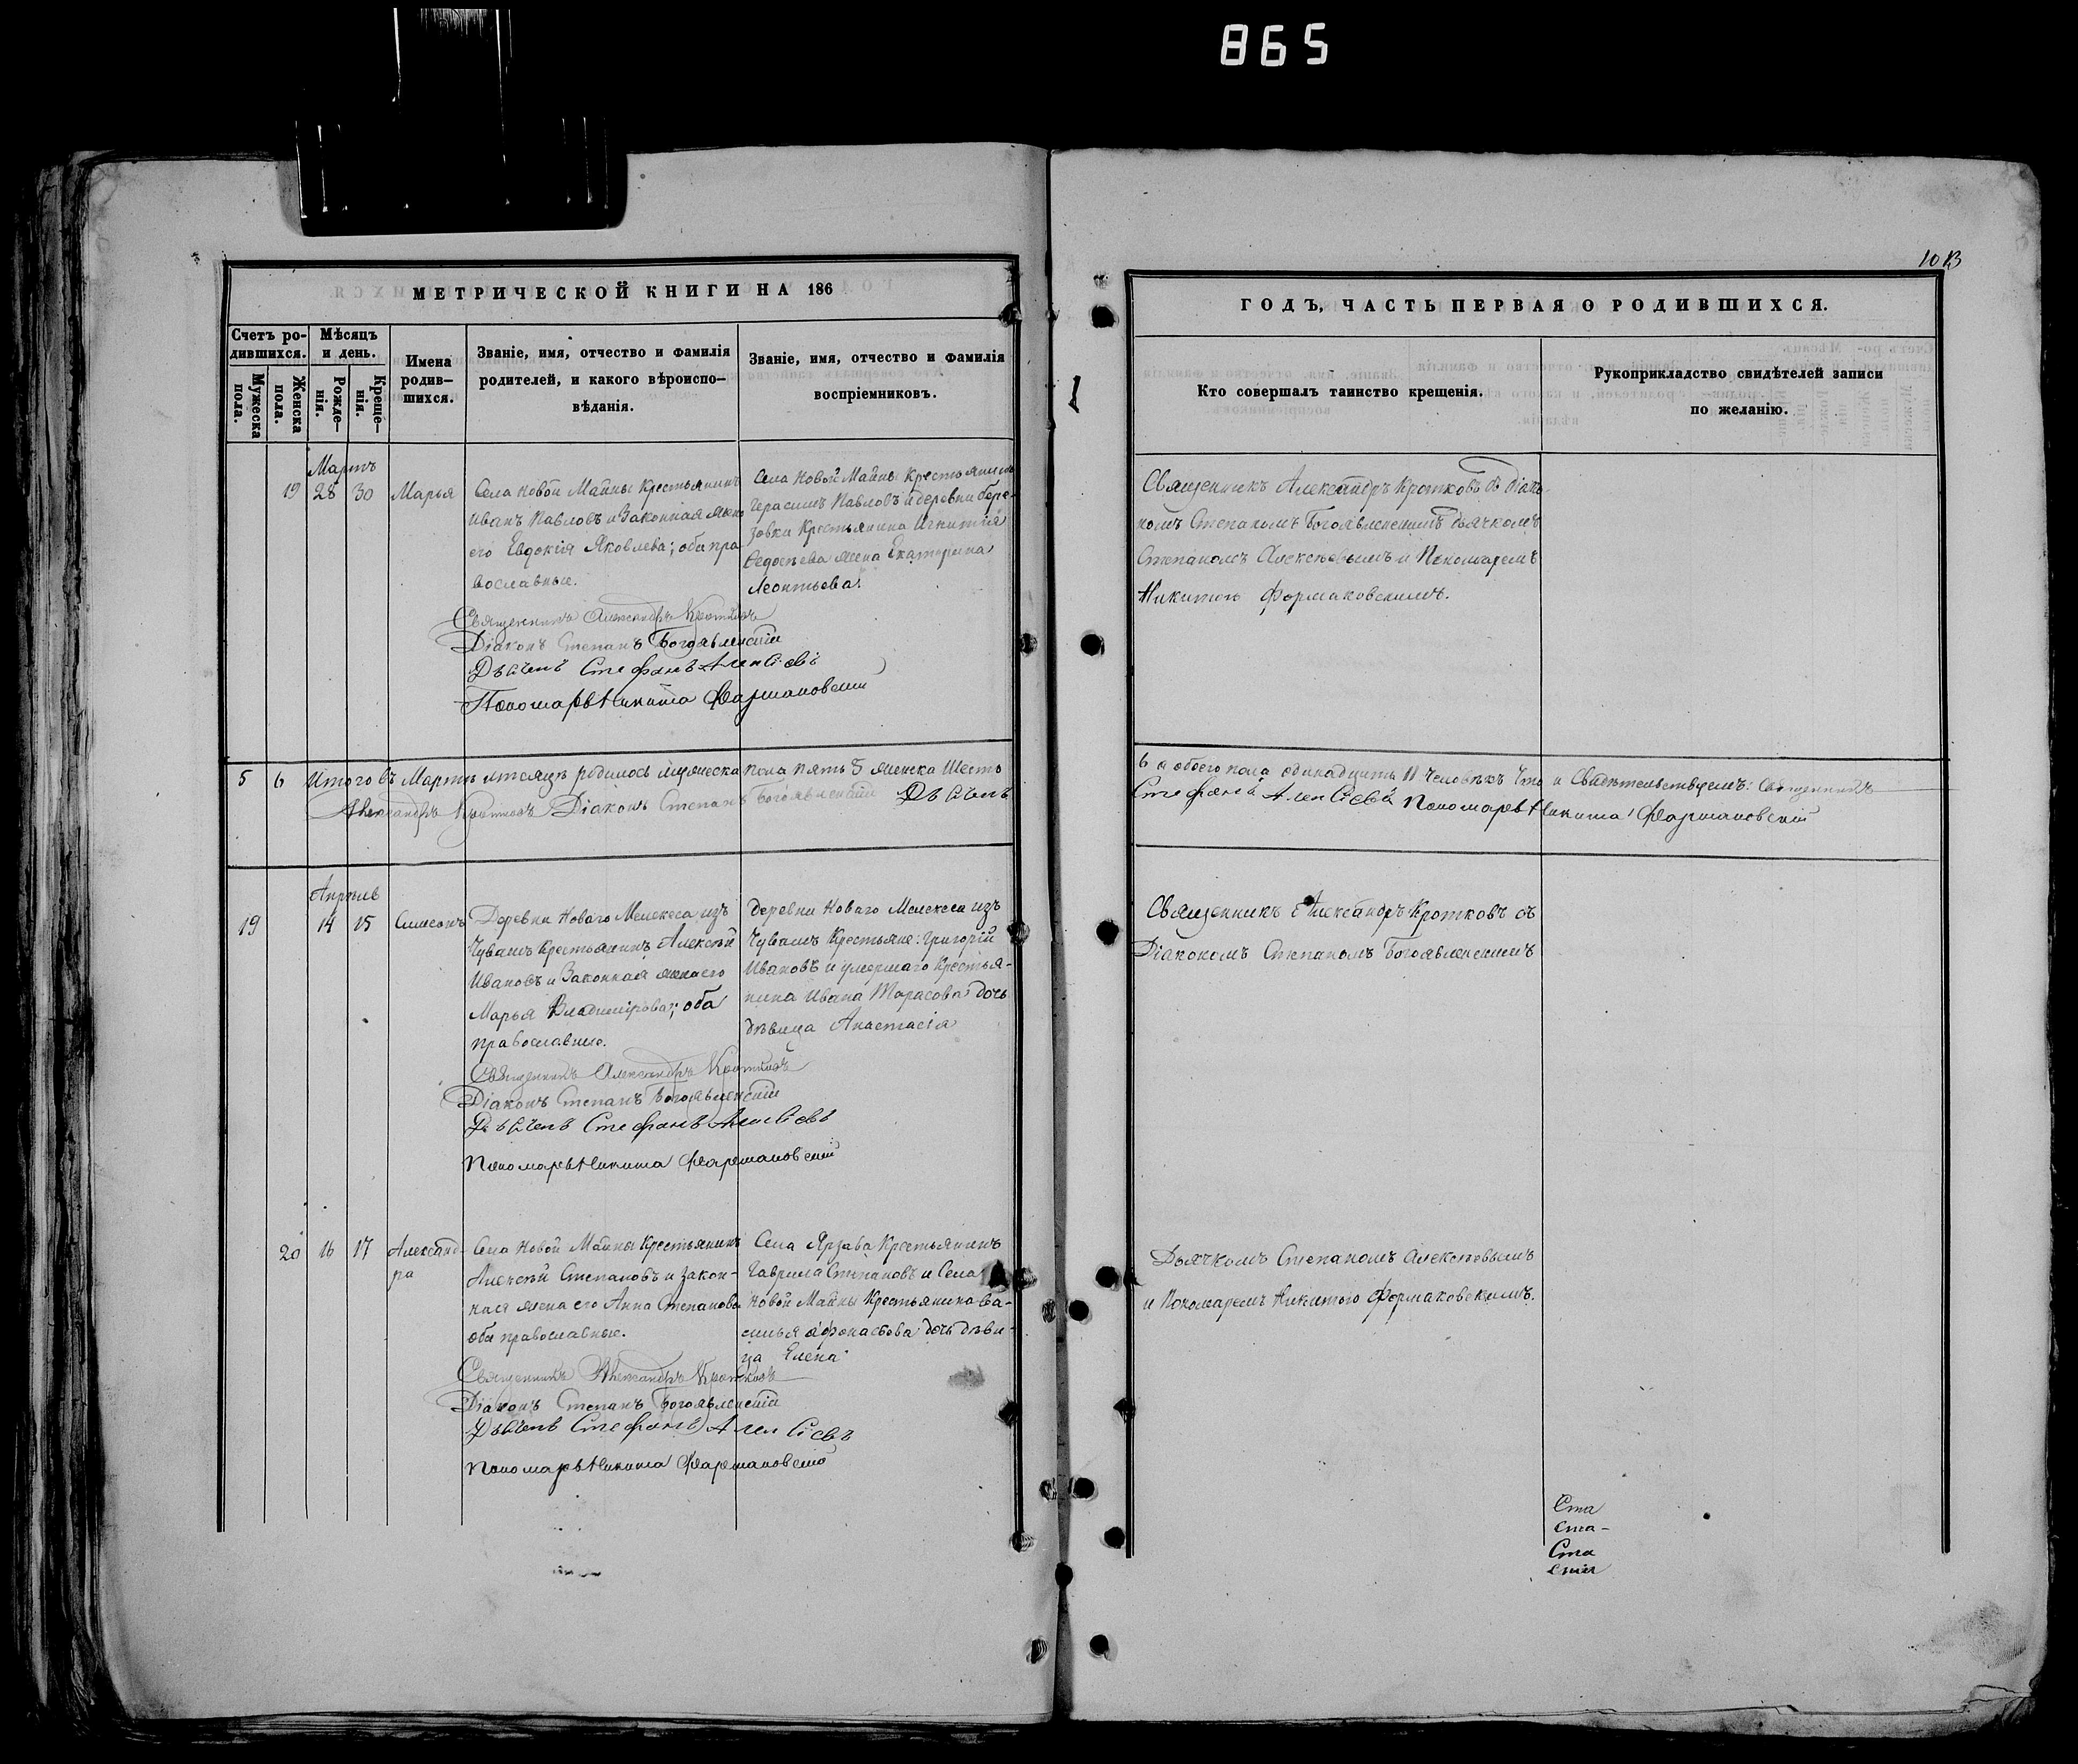 865
1013
МЕТРИЧЕСКОЙ КНИГИ НА 186
Счетъ ро-
дившихся.
Мужеска
пола.
Женска
пола.
Мѣсяцъ
и день.
Рожде-
нія.
Креще-
нія.
Имена
родив-
шихся.
Званіе, имя, отчество и фамилія
родителей, и какого вѣроиспо-
вѣданія.
Званіе, имя, отчество и фамилія
воспріемниковъ.
Мартъ
19 28 30 Марья
Села Новой Майны Крестьянинъ
Иванъ Павловъ и Законная жена
его Евдокія Яковлева; оба пра
вославные.
Села Новой Майны Крестьянинъ
Герасимъ Павловъ и деревни бере-
зовки Крестьянина Игнатія
Ѳедосѣева жена Екатерина
Леонтьева.
Священникъ Александръ Кротковъ
Діаконъ Степанъ Богоявленскій
Дьячекъ Стефанъ Алексіевъ
Пономарь Никита Формаковскій
5 6 Итого въ Мартѣ мѣсяцѣ родилось мужеска пола пять 5 женска шесть
Александръ Кротковъ Діаконъ Степанъ Богоявленскій Дьячекъ
Апрѣль
19 14 15 Симеонъ
Деревни Новаго Мелекеса изъ
Чувашъ Крестьянинъ Алексѣй
Ивановъ и Законная жена его
Марья Владимірова; оба
православные.
Деревни Новаго Мелекеса изъ
Чувашъ Крестьяне: Григорій
Ивановъ и умершаго Крестья-
нина Ивана Тарасова дочь
дѣвица Анастасія
Священникъ Александръ Кротковъ
Діаконъ Степанъ Богоявленскій
Дьячекъ Стефанъ Алексіевъ
Пономарь Никита Формаковскій
20 16 17 Александ-
ра
Села Новой Майны Крестьянинъ
Алексѣй Степановъ и закон-
ная жена его Анна Степанова
оба православные.
Села Крестьянинъ
Гаврила Степановъ и Села
Новой Майны Крестьянина Ва-
силья Афонасьова дочь дѣви-
ца Елена
Священникъ Александръ Кротковъ
Діаконъ Степанъ Богоявленскій
Дьячекъ Стефанъ Алексіевъ
Пономарь Никита Формаковскій
ГОДЪ, ЧАСТЬ ПЕРВАЯ О РОДИВШИХСЯ.
Кто совершалъ таинство крещенія.
Рукоприкладство свидѣтелей записи
по желанію.
Священникъ Александръ Кротковъ съ Діако-
номъ Степаномъ Богоявленскимъ дьячкомъ
Степаномъ Алексѣевымъ и Пономаремъ
Никитою Формаковскимъ.
6 а обоего пола одинадцать 11 Человѣкъ Что и Свидѣтельствуемъ: Священникъ
Стефанъ Алексіевъ Пономарь Никита Формаковскій
Священникъ Александръ Кротковъ съ
Діакономъ Степаномъ Богоявленскимъ
Дьячкомъ Степаномъ Алексѣевымъ
и Пономаремъ Никитою Формаковскимъ.
Ста
ста-
Ста